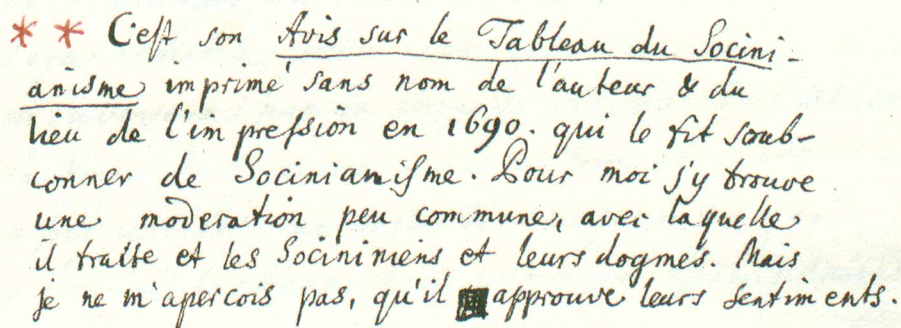 ** C'eſt son Avis sur le Tableau du Socini-
anisme imprimé sans nom de l'auteur & du
lieu de l'impreſsion en 1690. qui le fit soub-
conner de Socinianiſme. Pour moi j'y trouve
une moderation peu commune, avec laquelle
il traite et les Socininiens et leurs dogmes. Mais
je ne m'apercois pas, qu'il approuve leurs sentiments.